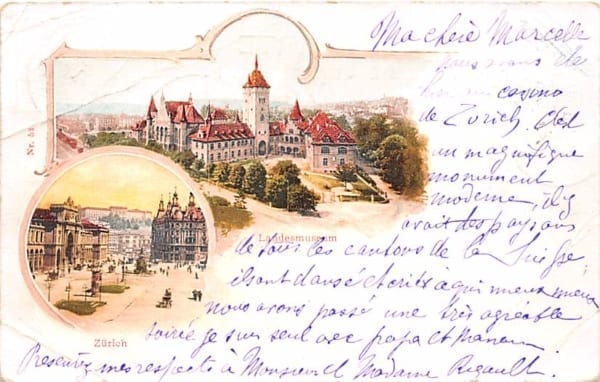 Ma chère Marcelle
nous avons été
hier au casino
de Zurich. C'est
un magnifique
monument
moderne, il y
avait des paysans
de tous les cantons de la Suisse
ils ont dansé et crié à qui mieux mieux
nous avons passé une très agréable
soirée je suis seul avec papa et maman
Présentez mes respects à Monsieur et Madame Rigault.
Nr. 52
Landesmuseum
Zürich